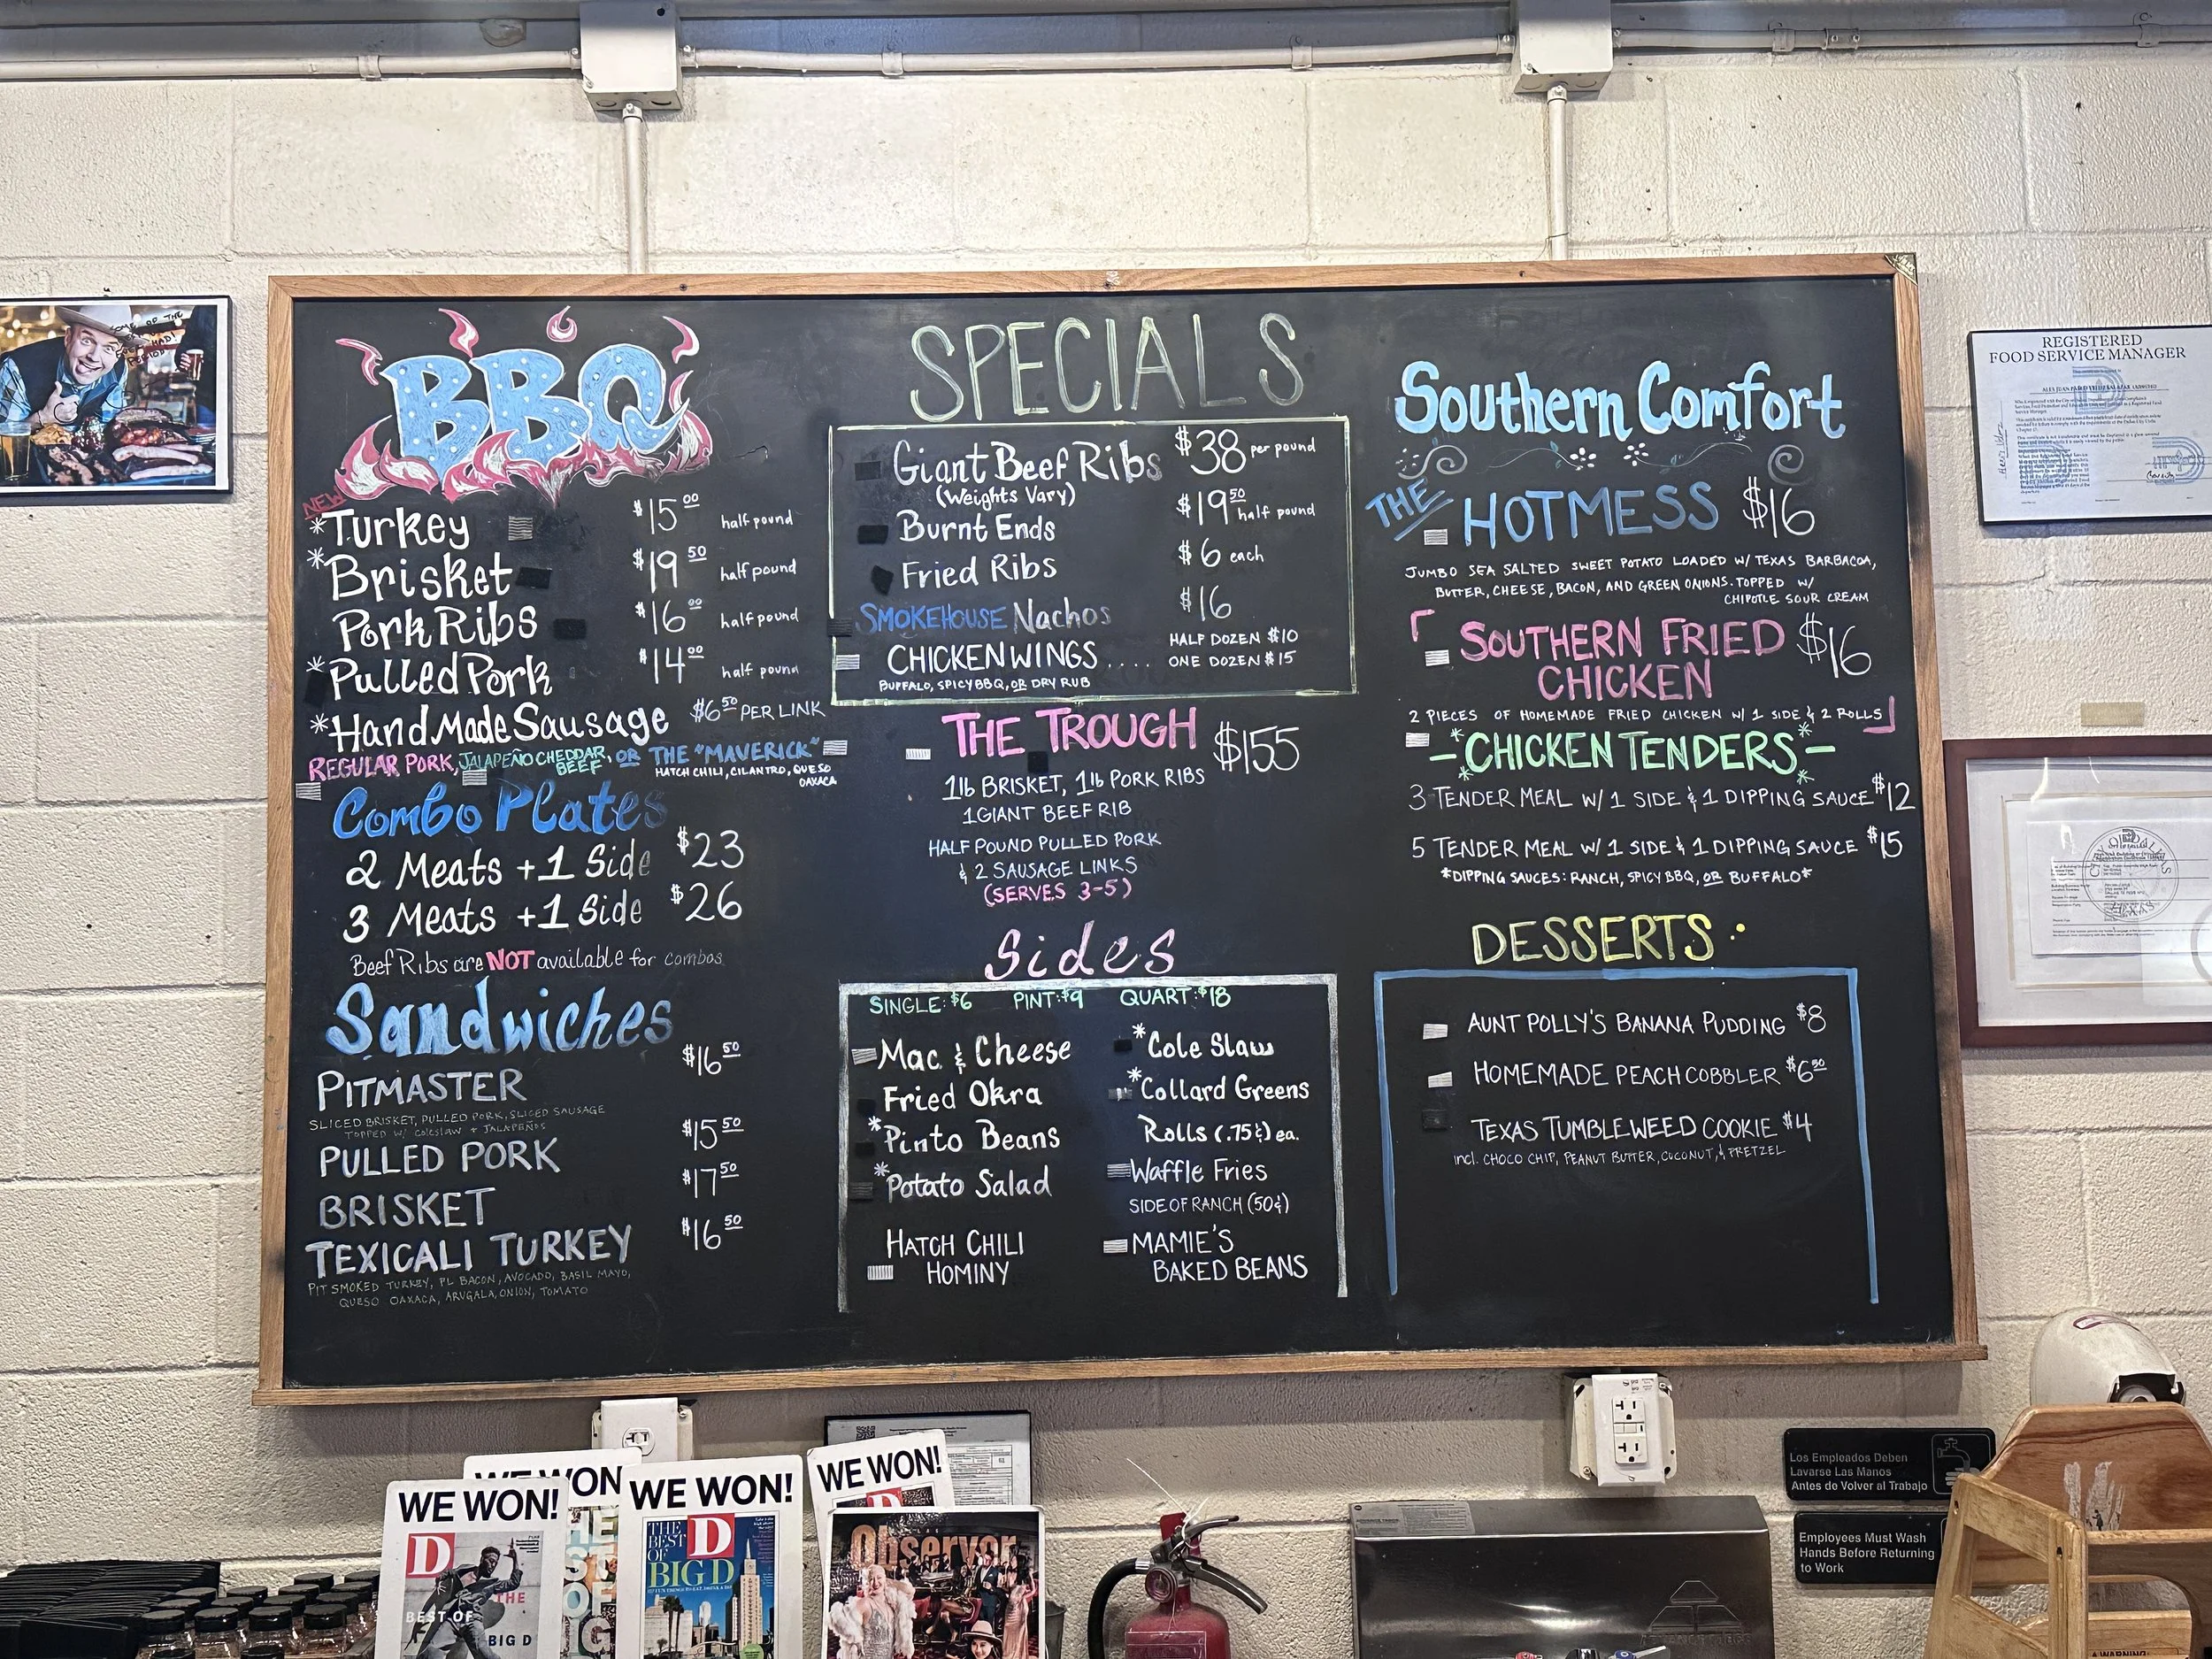 BBQ
NEW
*Turkey $15.00 half pound
*Brisket $19.50 half pound
Pork Ribs $16.00 half pound
*Pulled Pork $14.00 half pound
*Hand Made Sausage $6.50 PER LINK
REGULAR PORK, JALAPEÑO CHEDDAR BEEF, OR THE "MAVERICK"
HATCH CHILI, CILANTRO, QUESO
OAXACA
Combo Plates
2 Meats + 1 Side $23
3 Meats + 1 Side $26
Beef Ribs are NOT available for combos
Sandwiches
PITMASTER $16.50
SLICED BRISKET, PULLED PORK, SLICED SAUSAGE
TOPPED W/ Coleslaw + JALAPEÑOS
PULLED PORK $15.50
BRISKET $17.50
TEXICALI TURKEY $16.50
PIT SMOKED TURKEY, PL BACON, AVOCADO, BASIL MAYO,
QUESO OAXACA, ARUGALA, ONION, TOMATO
SPECIALS
Giant Beef Ribs $38 per pound
(Weights Vary)
Burnt Ends $19.50 half pound
Fried Ribs $6 each
SMOKEHOUSE Nachos $16
CHICKEN WINGS .... HALF DOZEN $10
ONE DOZEN $15
BUFFALO, SPICY BBQ, OR DRY RUB
THE TROUGH $155
1lb BRISKET, 1lb PORK RIBS
1 GIANT BEEF RIB
HALF POUND PULLED PORK
& 2 SAUSAGE LINKS
(SERVES 3-5)
Sides
SINGLE: $6 PINT: $9 QUART: $18
Mac & Cheese
Fried Okra
*Pinto Beans
*Potato Salad
HATCH CHILI
HOMINY
*Cole Slaw
*Collard Greens
Rolls (.75¢) ea.
Waffle Fries
SIDE OF RANCH (50¢)
MAMIE'S
BAKED BEANS
Southern Comfort
THE HOTMESS $16
JUMBO SEA SALTED SWEET POTATO LOADED W/ TEXAS BARBACOA,
BUTTER, CHEESE, BACON, AND GREEN ONIONS. TOPPED W/
CHIPOTLE SOUR CREAM
SOUTHERN FRIED $16
CHICKEN
2 PIECES OF HOMEMADE FRIED CHICKEN W/ 1 SIDE & 2 ROLLS
-*CHICKEN TENDERS*-
3 TENDER MEAL W/ 1 SIDE & 1 DIPPING SAUCE $12
5 TENDER MEAL W/ 1 SIDE & 1 DIPPING SAUCE $15
*DIPPING SAUCES: RANCH, SPICY BBQ, OR BUFFALO*
DESSERTS
AUNT POLLY'S BANANA PUDDING $8
HOMEMADE PEACH COBBLER $6.50
TEXAS TUMBLEWEED COOKIE $4
incl. CHOCO CHIP, PEANUT BUTTER, COCONUT, & PRETZEL
SOME OF THE
PERIOD!
REGISTERED
FOOD SERVICE MANAGER
CITY OF DALLAS
TEXAS
WE WON!
D
THE
BEST OF
BIG D
WE WON
WE WON!
THE
BEST
OF
D
BIG D
WE WON!
D
Observer
Los Empleados Deben
Lavarse Las Manos
Antes de Volver al Trabajo
Employees Must Wash
Hands Before Returning
to Work
WARNING